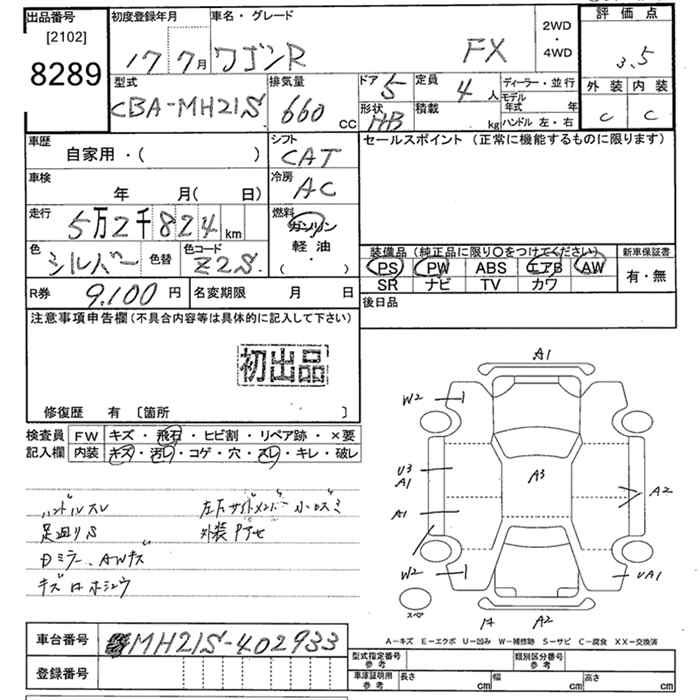 出品番号
[2102]
8289
初度登録年月
17 7月
車名・グレード
ワゴンR FX
2WD
・
4WD
評価点
3.5
外装 内装
C C
型式
CBA-MH21S
排気量
660 CC
ドア 5
形状 HB
定員 4 人
積載 kg
ディーラー・並行
モデル年式 年
ハンドル 左・右
車歴
自家用・( )
シフト
CAT
セールスポイント (正常に機能するものに限ります)
車検
年 月( 日)
冷房
AC
走行
5万2千824 km
燃料
ガソリン
軽油
( ・ )
色
シルバー
色替
色コード
Z2S
装備品 (純正品に限り〇をつけてください)
PS PW ABS エアB AW
SR ナビ TV カワ
新車保証書
有・無
R券 9,100 円
名変期限 月 日
後日品
注意事項申告欄(不具合内容等は具体的に記入して下さい)
初出品
修復歴 有 〔箇所 〕
検査員記入欄
FW キズ・飛石・ヒビ割・リペア跡・×要
内装 キズ・汚レ・コゲ・穴・スレ・キレ・破レ
ハンドルスレ
足廻りS
Dミラー、AWキズ
左右サイドメンバー小凹ミ
外装
A1
W2
U3
A1
A1
W2
A3
A2
UA1
A2
スペア
A-キズ E-エクボ U-凹み W-補修跡 S-サビ C-腐食 XX-交換済
車台番号 MH21S-402933
登録番号
型式指定番号
参考
類別区分番号
参考
車庫証明用
参考
長さ cm 幅 cm 高さ cm